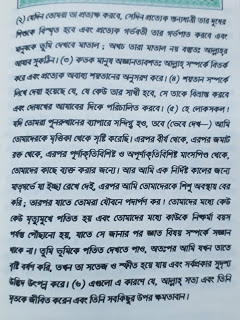 (২) যেদিন তোমরা তা প্রত্যক্ষ করবে, সেদিন প্রত্যেক স্তন্যধাত্রী তার দুধের
শিশুকে বিস্মৃত হবে এবং প্রত্যেক গর্ভবতী তার গর্ভপাত করবে এবং
মানুষকে তুমি দেখবে মাতাল; অথচ তারা মাতাল নয় বস্তুতঃ আল্লাহর
আযাব সুকঠিন। (৩) কতক মানুষ অজ্ঞানতাবশতঃ আল্লাহ্ সম্পর্কে বিতর্ক
করে এবং প্রত্যেক অবাধ্য শয়তানের অনুসরণ করে। (৪) শয়তান সম্পর্কে
লিখে দেয়া হয়েছে যে, যে কেউ তার সাথী হবে, সে তাকে বিভ্রান্ত করবে
এবং দোযখের আযাবের দিকে পরিচালিত করবে। (৫) হে লোকসকল!
যদি তোমরা পুনরুত্থানের ব্যাপারে সন্দিগ্ধ হও, তবে (ভেবে দেখ—) আমি
তোমাদেরকে মৃত্তিকা থেকে সৃষ্টি করেছি। এরপর বীর্য থেকে, এরপর জমাট
রক্ত থেকে, এরপর পূর্ণাকৃতিবিশিষ্ট ও অপূর্ণাকৃতিবিশিষ্ট মাংসপিণ্ড থেকে,
তোমাদের কাছে ব্যক্ত করার জন্যে। আর আমি এক নির্দিষ্ট কালের জন্যে
মাতৃগর্ভে যা ইচ্ছা রেখে দেই, এরপর আমি তোমাদেরকে শিশু অবস্থায় বের
করি; তারপর যাতে তোমরা যৌবনে পদার্পণ কর। তোমাদের মধ্যে কেউ
কেউ মৃত্যুমুখে পতিত হয় এবং তোমাদের মধ্যে কাউকে নিষ্কর্মা বয়স
পর্যন্ত পৌছানো হয়, যাতে সে জানার পর জ্ঞাত বিষয় সম্পর্কে সজ্ঞান
থাকে না। তুমি ভূমিকে পতিত দেখতে পাও, অতঃপর আমি যখন তাতে
বৃষ্টি বর্ষণ করি, তখন তা সতেজ ও স্ফীত হয়ে যায় এবং সর্বপ্রকার সুদৃশ্য
উদ্ভিদ উৎপন্ন করে। (৬) এগুলো এ কারণে যে, আল্লাহ্ সত্য এবং তিনি
মৃতকে জীবিত করেন এবং তিনি সবকিছুর উপর ক্ষমতাবান।